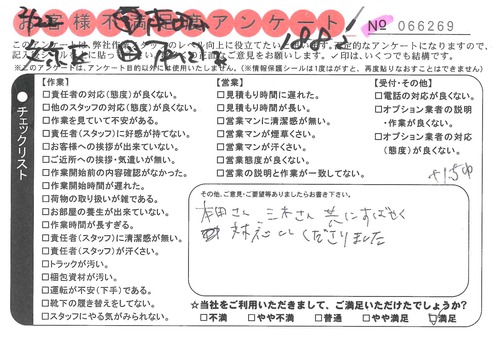 お客様不満足度アンケート
№ 066269
このアンケートは、弊社作業スタッフのレベル向上に役立てたいと思います。否定的なアンケートになりますので、
ご意見お願いします。✓印は、いくつでも結構です。
※このアンケートは、アンケート目的以外には使用いたしません。(※情報保護シールは1度はがすと、再度貼りなおすことはできません)
チェックリスト
【作業】
□責任者の対応(態度)が良くない。
□他のスタッフの対応(態度)が良くない。
□作業を見ていて不安がある。
□責任者(スタッフ)に好感が持てない。
□お客様への挨拶が出来ていない。
□ご近所への挨拶・気遣いが無い。
□作業開始前の内容確認がなかった。
□作業開始時間が遅れた。
□荷物の取り扱いが雑である。
□お部屋の養生が出来ていない。
□作業時間が長すぎる。
□責任者(スタッフ)に清潔感が無い。
□責任者(スタッフ)が汗くさい。
□トラックが汚い。
□梱包資材が汚い。
□運転が不安(下手)である。
□靴下の履き替えをしてない。
□スタッフにやる気がみられない。
【営業】
□見積もり時間に遅れた。
□見積もり時間が長い。
□営業マンに清潔感が無い。
□営業マンが煙草くさい。
□営業マンが汗くさい。
□営業態度が良くない。
□営業の説明と作業が一致してない。
【受付・その他】
□電話の対応が良くない。
□オプション業者の説明
・作業が良くない。
□オプション業者の対応
(態度)が良くない。
その他、ご意見・ご要望等ありましたらお書き下さい。
本田さん 三木さん 共にすばやく
対応して くださりました
☆当社をご利用いただきまして、ご満足いただけたでしょうか?
□不満 □やや不満 □普通 □やや満足 ☑満足